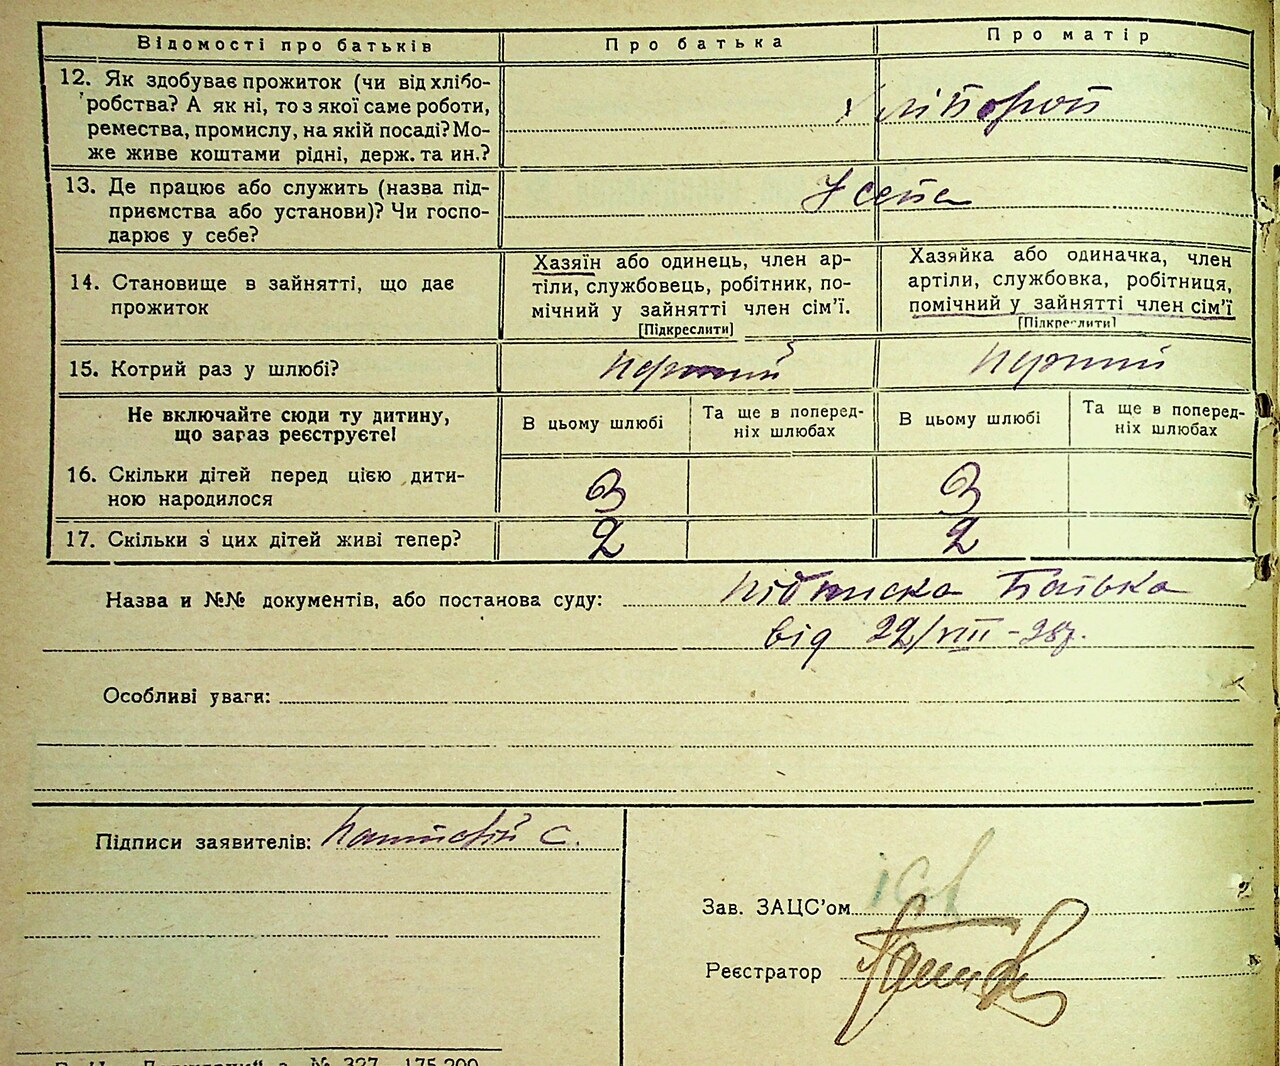 Відомості про батьків Про батька Про матір
12. Як здобуває прожиток (чи від хлібо-
робства? А як ні, то з якої саме роботи,
ремества, промислу, на якій посаді? Мо-
же живе коштами рідні, держ. та ин.?
13. Де працює або служить (назва під-
приємства або установи)? Чи госпо-
дарює у себе?
У себе
14. Становище в зайнятті, що дає
прожиток
Хазяїн або одинець, член ар-
тіли, службовець, робітник, по-
мічний у зайнятті член сім’ї.
[Підкреслити]
Хазяйка або одиначка, член
артіли, службовка, робітниця,
помічний у зайнятті член сім’ї
[Підкреслити]
15. Котрий раз у шлюбі? перший перший
Не включайте сюди ту дитину,
що зараз реєструєте!
В цьому шлюбі
Та ще в поперед-
ніх шлюбах
В цьому шлюбі
Та ще в поперед-
ніх шлюбах
16. Скільки дітей перед цією дити-
ною народилося
3 3
17. Скільки з цих дітей живі тепер? 2 2
Назва и №№ документів, або постанова суду: підписка батька
від 22/VIII-28р.
Особливі уваги:
Підписи заявителів: С.
Зав. ЗАЦС’ом
Реєстратор
№ 327—175.200